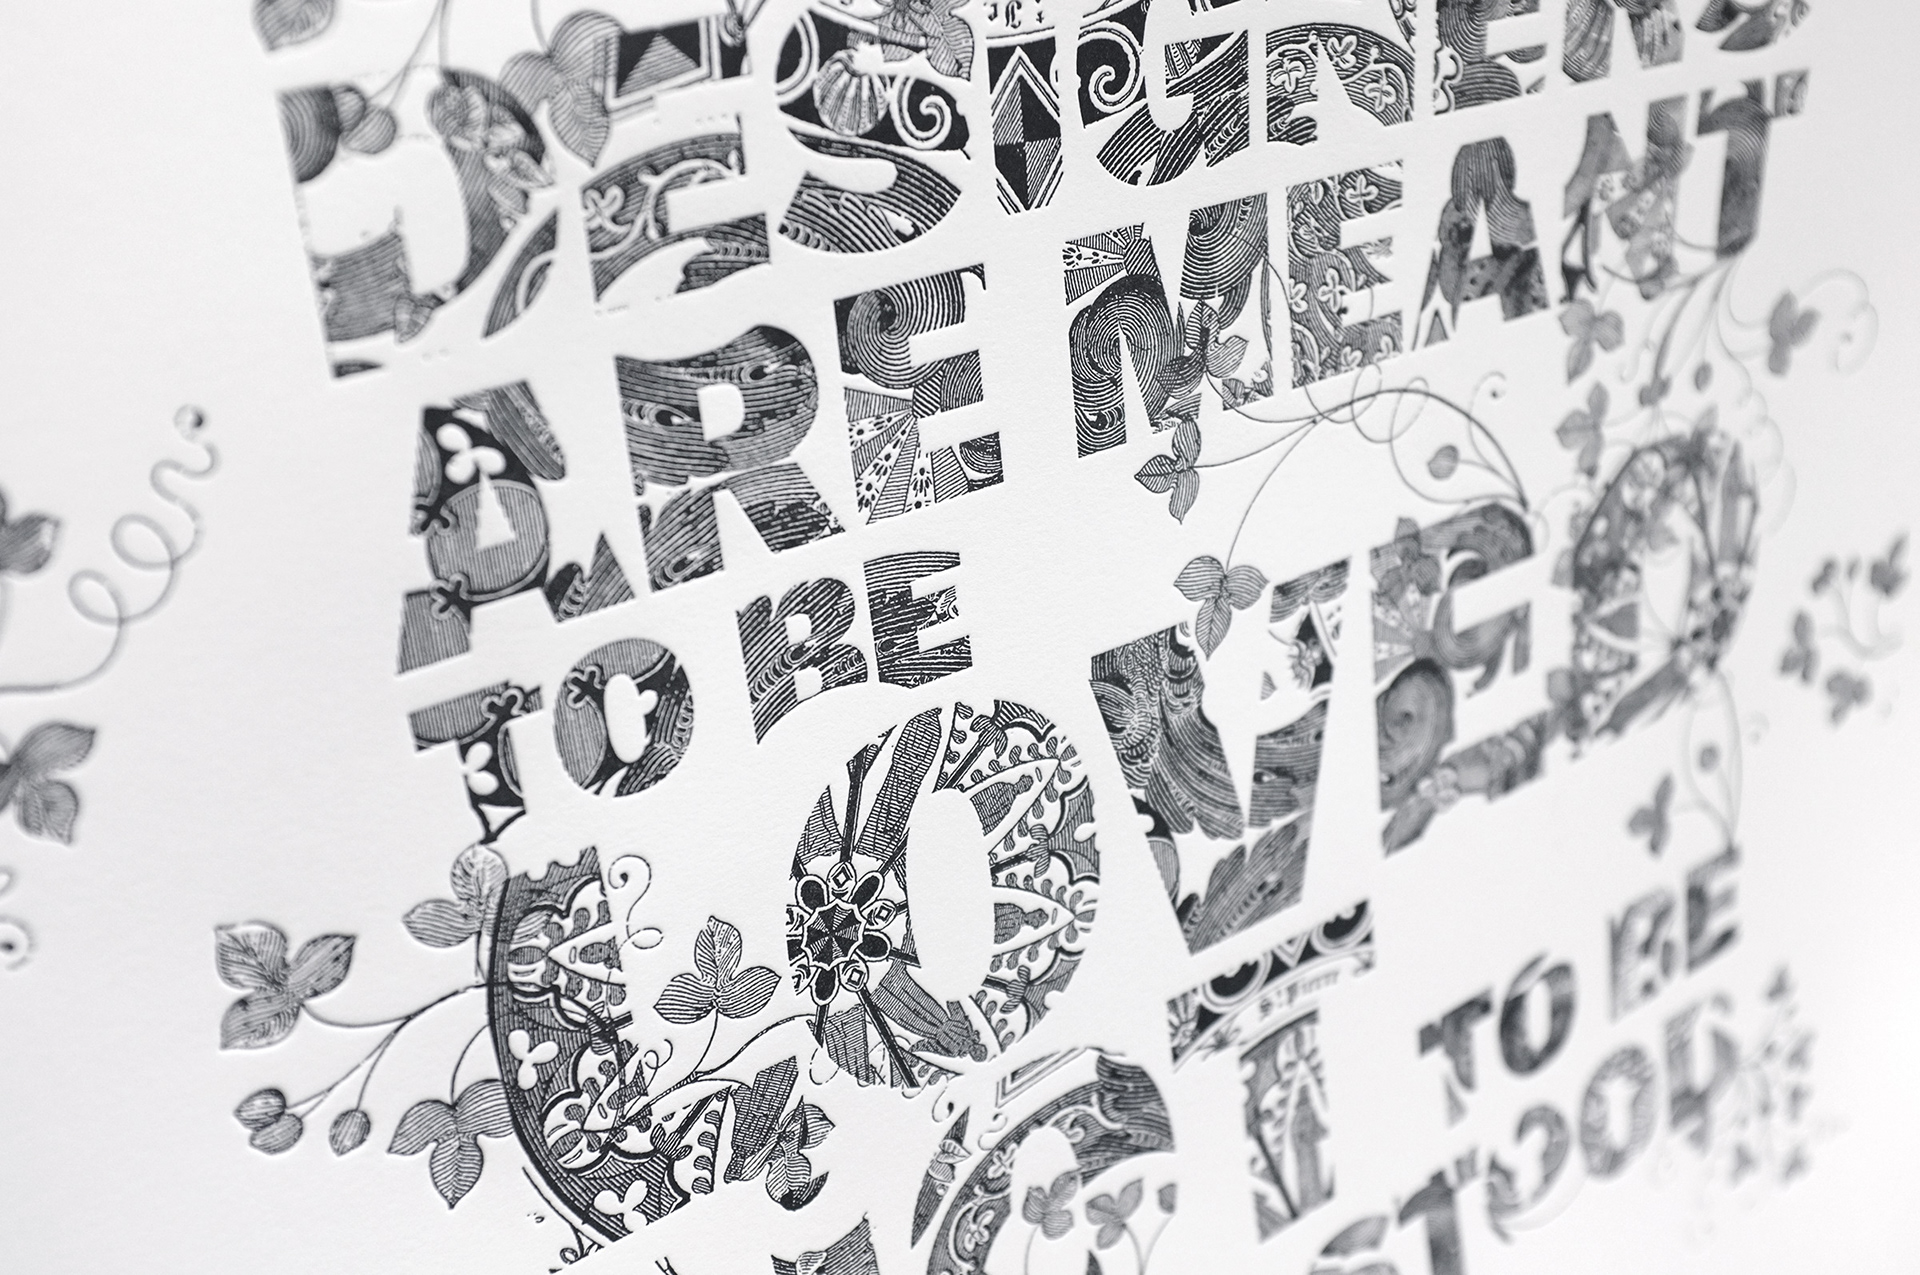 DESIGNERS
ARE MEANT
TO BE
LOVED
NOT TO BE
St Pierre